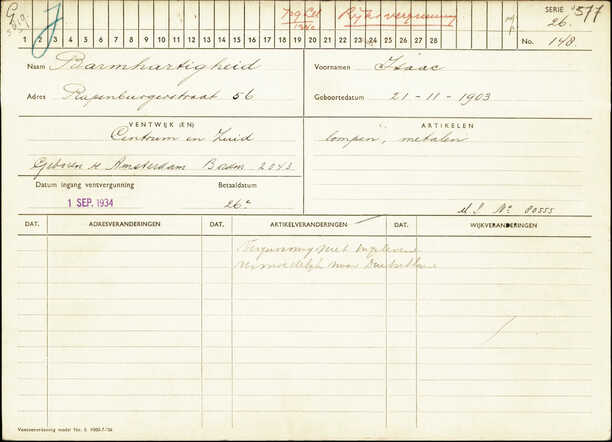 J
Rijksvergunning
SERIE 26. 577
1 2 3 4 5 6 7 8 9 10 11 12 13 14 15 16 17 18 19 20 21 22 23 24 25 26 27 28
No. 148.
Naam Barmhartigheid
Voornamen Isaac
Adres Rapenburgerstraat 56
Geboortedatum 21-11-1903
VENTWIJK (EN)
ARTIKELEN
Centrum en Zuid
lompen, metalen
Geboren te Amsterdam
2043
Datum ingang ventvergunning
Betaaldatum
1 SEP. 1934
26
No 80555
DAT. ADRESVERANDERINGEN DAT. ARTIKELVERANDERINGEN DAT. WIJKVERANDERINGEN
Vergunning niet ingeleverd
vermoedelijk naar Duitschland
Ventvergunning model No. 5